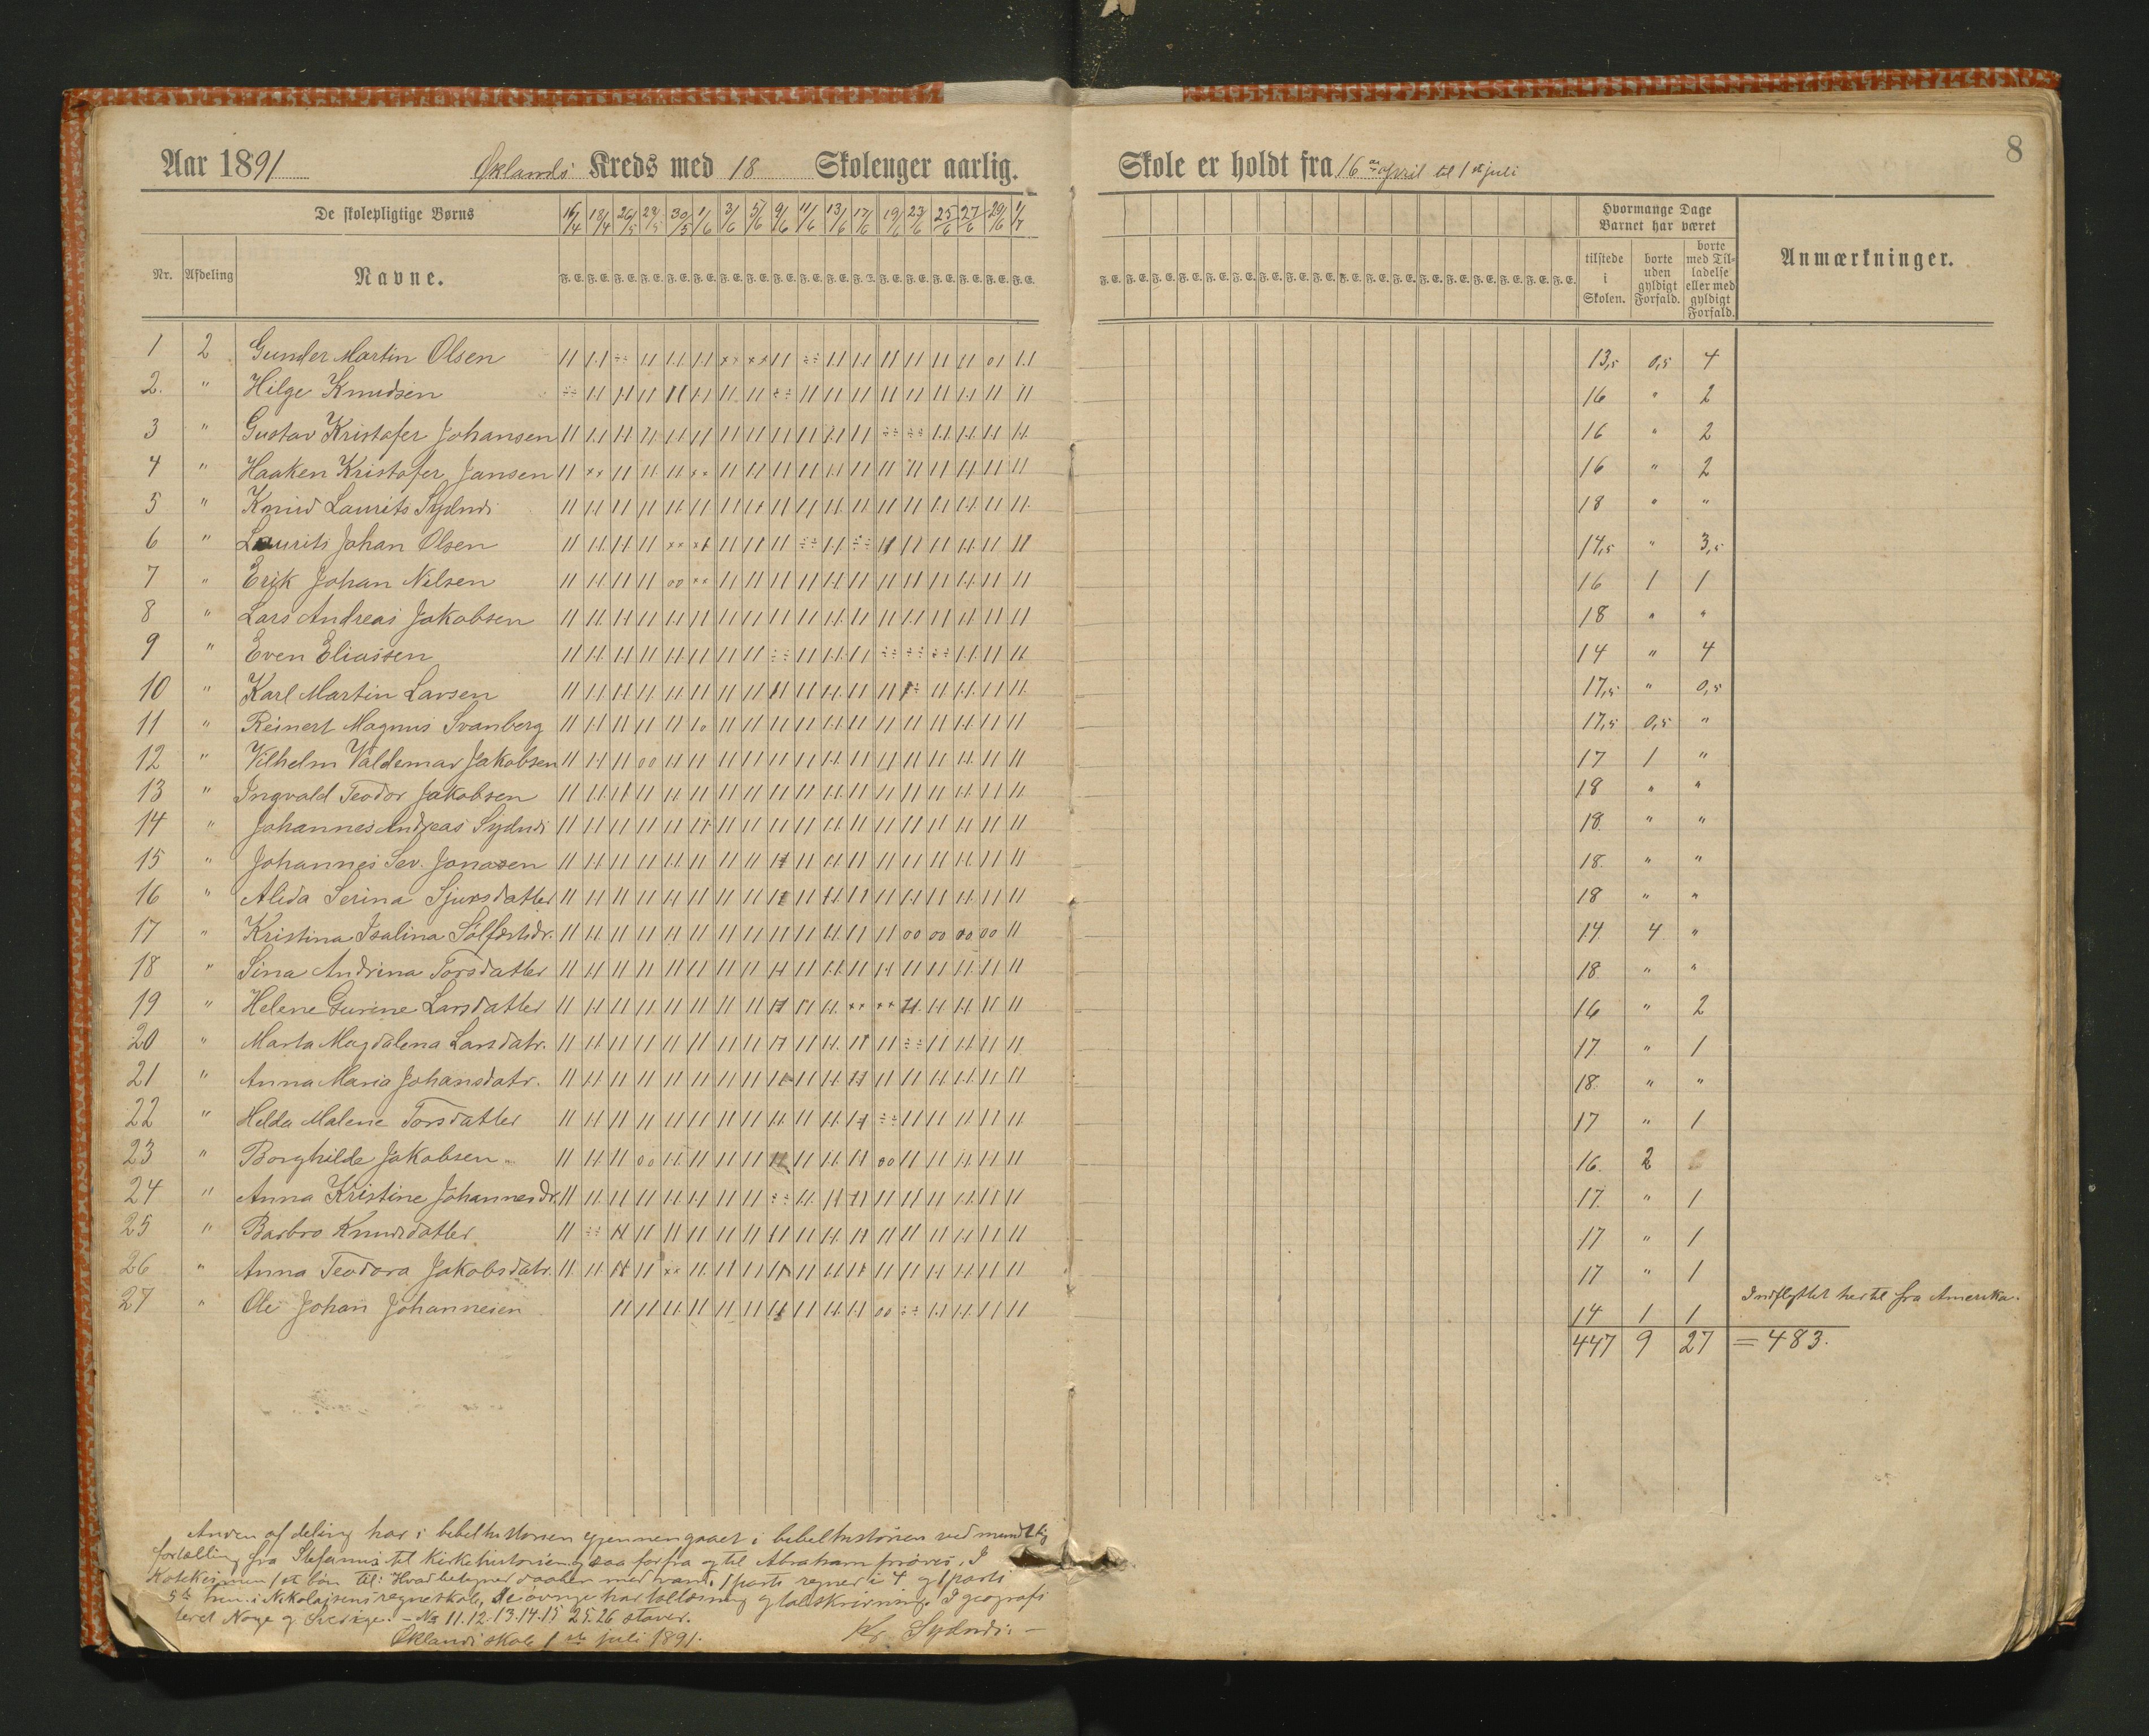 8
Aar 1891 Øklands Kreds med 18 Skolenger aarlig. Skole er holdt fra 16de april til 1ste juli
De skolepligtige Børns
16/4 18/4 26/5 29/5 30/5 1/6 3/6 5/6 9/6 11/6 13/6 17/6 19/6 23/6 25/6 27/6 29/6 1/7
Hvormange Dage Barnet har været
Nr. Afdeling Navne. tilstede i Skolen. borte uden gyldigt Forfald. borte med Tilladelse eller med gyldigt Forfald. Anmærkninger.
1 2 Gunder Martin Olsen 13,5 0,5 4
2. " Hilge Knudsen 16 " 2
3 " Gustav Kristofer Johansen 16 " 2
4 " Haaken Kristofer Jansen 16 " 2
5 " Knud Laurits Sydnds 18 " "
6 " Laurits Johan Olsen 14,5 " 3,5
7 " Erik Johan Nilsen 16 1 1
8 " Lars Andreas Jakobsen 18 " "
9 " Even Eliassen 14 " 4
10 " Karl Martin Larsen 17,5 " 0,5
11 " Reinert Magnus Svanberg 17,5 0,5 "
12 " Vilhelm Valdemar Jakobsen 17 1 "
13 " Ingvald Teodor Jakobsen 18 " "
14 " Johannes Andreas Sydnds 18. " "
15 " Johannes Sev. Jonasen 18. " "
16 " Alida Serina Sjursdatter 18 " "
17 " Kristina Isalina Solfestdr. 14. 4 "
18 " Sina Andrina Torsdatter 18 " "
19 " Helene Gurine Larsdatter 16 " 2
20 " Marta Magdalena Larsdatr. 17. " 1
21 " Anna Maria Johansdatr. 18. " "
22 " Helda Malene Torsdatter 17 " 1
23 " Borghilde Jakobsen 16. 2
24 " Anna Kristine Johannesdr. 17. " 1
25 " Barbro Knudsdatter 17 " 1
26 " Anna Teodora Jakobsdatr. 17 " 1
27 " Ole Johan Johannesen 14 1 1 Indflyttet hertil fra Amerika.
447 9 27 = 483.
Anden afdeling har i bibelhistorien gjennemgaaet i bibelhistorien ved mundtlig
fortælling fra Stefanus til kirkehistorien og saa forfra og til Abraham prøves. I
Katekismen 1ste bøn til: Hvad betegner daaben med vand. 1 parti regner i 4 og 1 parti
5te trin i Nikolaisens regneskole, De øvrige har tællæsning og talskrivning. I geografi
lært Norge og Sverige. – No 11.12.13.14.15 25.26 staver.
Øklands skole 1ste juli 1891. Kr. Sydnds. –